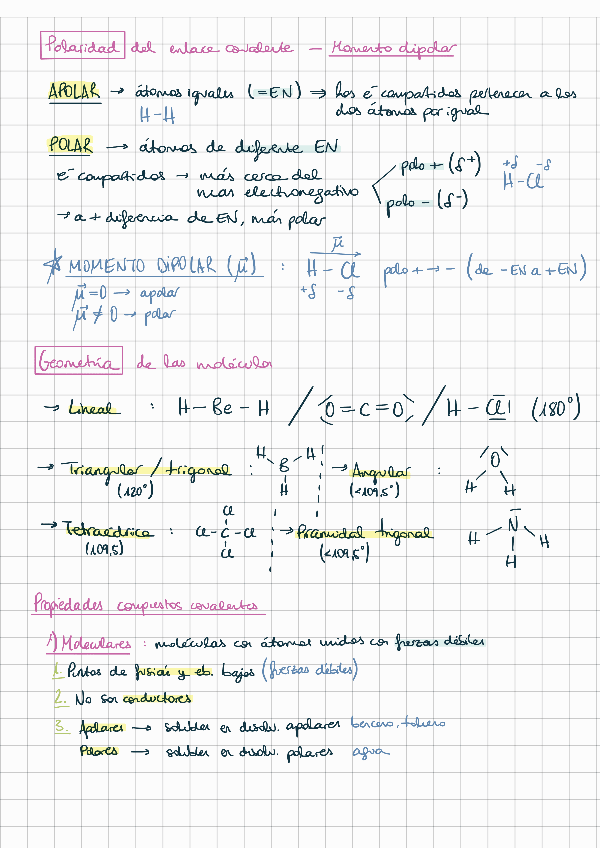 Polaridad del enlace covalente – Momento dipolar
APOLAR → átomos iguales (=EN) ⇒ los e⁻ compartidos pertenecen a los
H–H dos átomos por igual
POLAR → átomos de diferente EN
e⁻ compartidos → más cerca del
mas electronegativo
polo + (δ+)
polo – (δ-)
+δ -δ
H–Cl
→ a + diferencia de EN, más polar
* MOMENTO DIPOLAR (μ⃗) : H – Cl polo + → – (de -EN a +EN)
μ⃗
+δ -δ
μ⃗ = 0 → apolar
μ⃗ ≠ 0 → polar
Geometría de las moléculas
→ Lineal : H – Be – H / O = C = O / H – Cl (180°)
→ Triangular / trigonal : H B H H
(120°)
→ Angular : O H H
(<109,5°)
→ Tetraédrica : Cl Cl – C – Cl Cl
(109,5)
→ Piramidal trigonal H N H H
(<109,5°)
Propiedades compuestos covalentes
1) Moleculares : moléculas con átomos unidos con fuerzas débiles
1. Puntos de fusión y eb. bajos (fuerzas débiles)
2. No son conductores
3. Apolares → solubles en disolv. apolares benceno, tolueno
Polares → solubles en disolv. polares agua